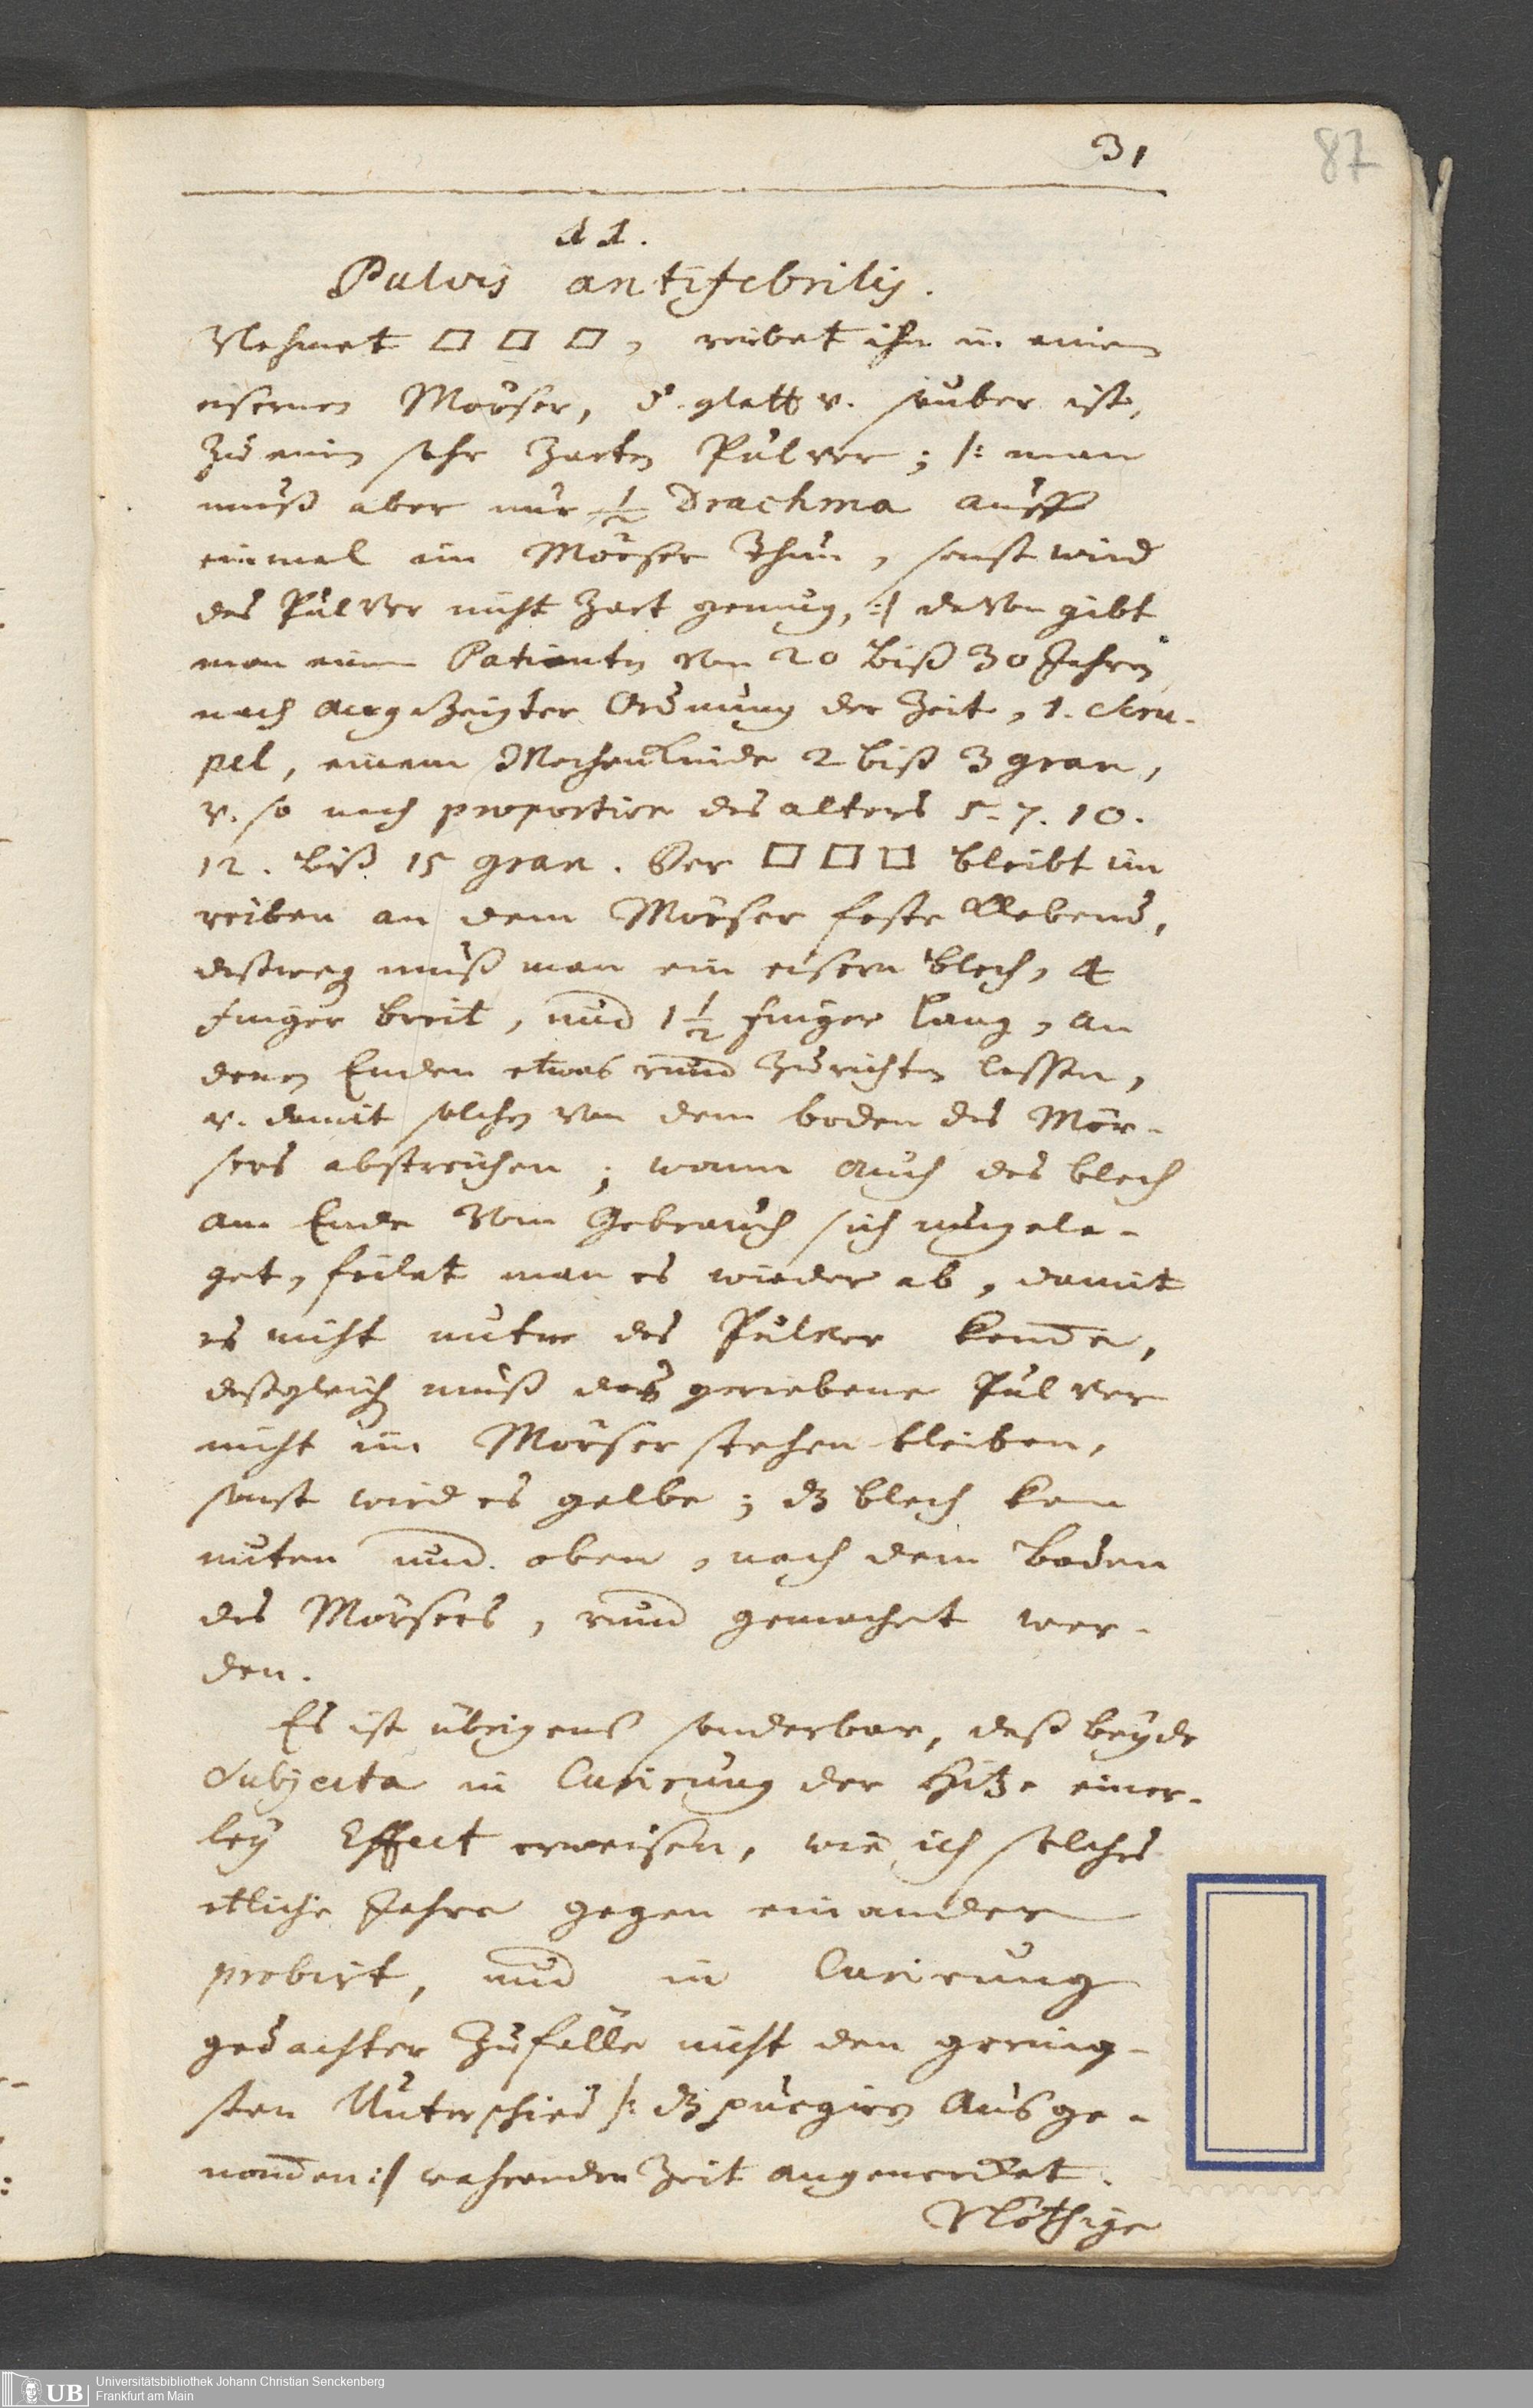 31
87
11.
Pulvis antifebrilis.
Nehmet □ □ □, reibet ihn in einem
eisernen Mörser, d. glatt v. sauber ist,
zu einem sehr zarten Pulver; /: man
muß aber nur ½ Drachma auff
einmal im Mörser thun, sonst wird
das Pulver nicht zart genug, :/ davon gibt
man einem Patienten von 20 biß 30 Jahren
nach angezeigter Ordnung der Zeit, 1. Scru-
pel, einem Wochenkinde 2 biß 3 gran,
v. so nach proportion des alters 5. 7. 10.
12. biß 15 gran. Der □ □ □ bleibt im
reiben an dem Mörser feste klebend,
deßweg muß man ein eisern blech, 4
finger breit, und 1½ finger lang, an
denen Enden etwas rund zurichten lassen,
v. damit solches von dem boden des Mör-
sers abstreichen; wann auch das blech
am Ende vom Gebrauch sich umgele-
get, feilet man es wieder ab, damit
es nicht unter das Pulver kom̅e,
deßgleich muß das geriebene Pulver
nicht im Mörser stehen bleiben,
sonst wird es gelbe; dz blech kan
unten und oben, nach dem Boden
des Mörsers, rund gemachet wer-
den.
Es ist übrigens sonderbar, daß beyde
Subjecta in Curirung der Hitze einer-
ley Effect erweisen, wie ich solches
etliche Jahre gegen einander
probirt, und in Curirung
gedachter Zufälle nicht den gering-
sten Unterschied /: dz purgiren ausge-
nom̅en :/ wehrender Zeit angemerket.
Nöthige
UB
Universitätsbibliothek Johann Christian Senckenberg
Frankfurt am Main